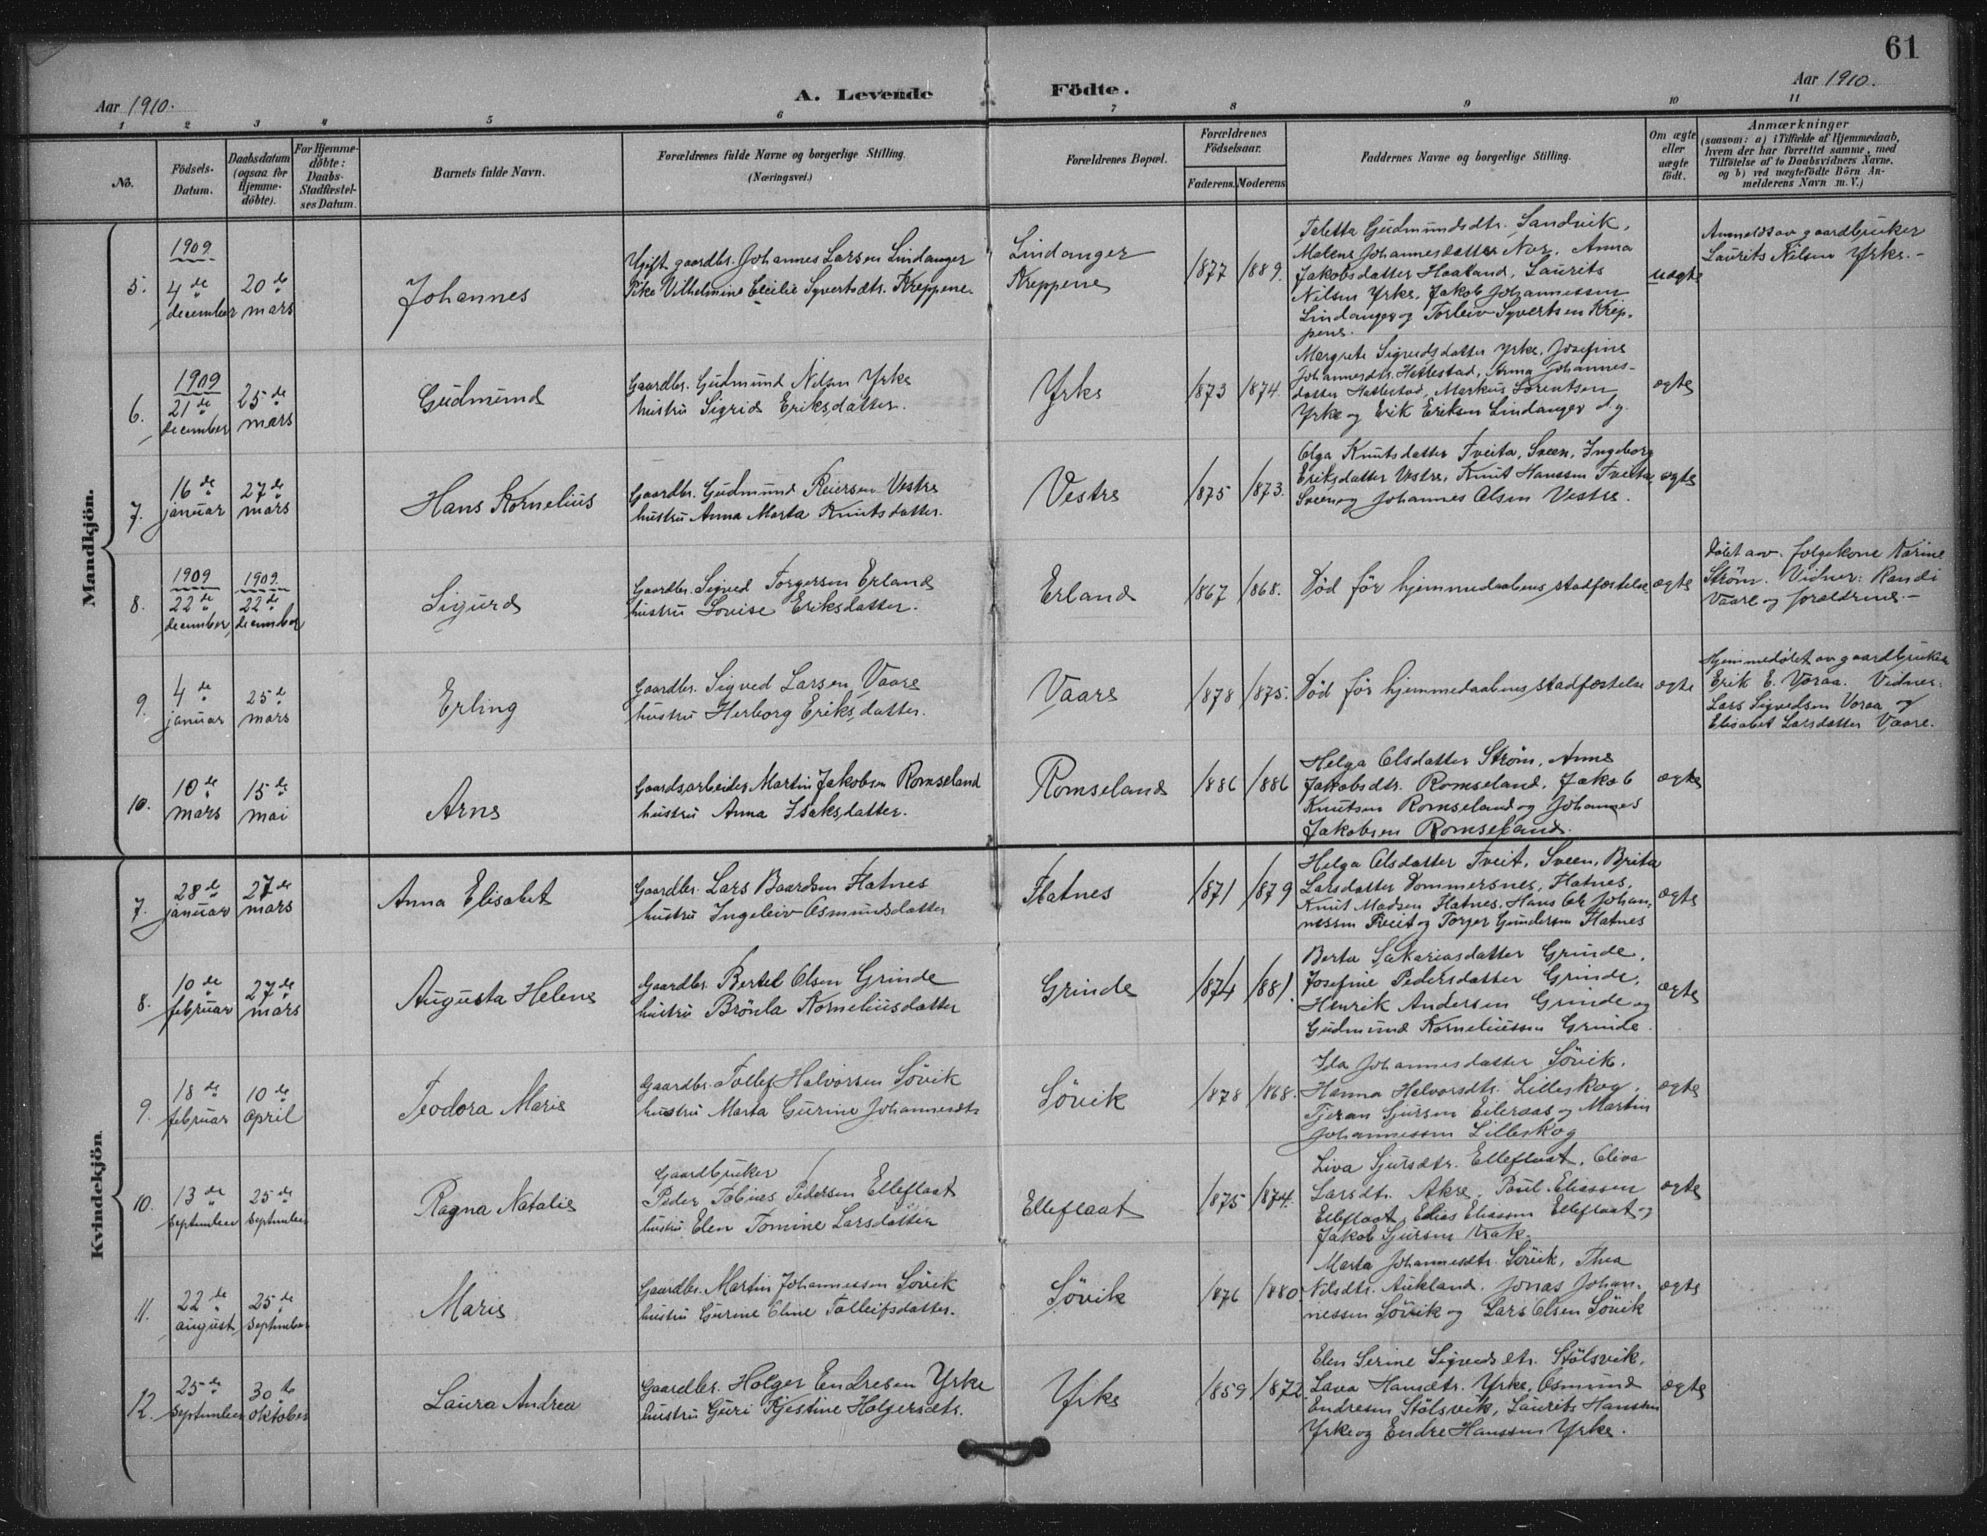 61
Aar 1910.
A. Levende Födte.
Aar 1910.
1 2 3 4 5 6 7 8 9 10 11
No.
Födsels-
Datum.
Daabsdatum
(ogsaa for
Hjemme-
döbte).
For Hjemme-
döbte:
Daabs-
Stadfæstel-
ses Datum.
Barnets fulde Navn.
Forældrenes fulde Navne og borgerlige Stilling.
(Næringsvei.)
Forældrenes Bopæl.
Forældrenes
Födselsaar.
Faderens. Moderens
Faddernes Navne og borgerlige Stilling.
Om ægte
eller
uægte
födt.
Anmærkninger
(saasom: a) i Tilfælde af Hjemmedaab,
hvem der har forrettet samme, med
Tilföielse af to Daabsvidners Navne.
og b) ved uægtefödte Börn An-
melderens Navn m. V.)
Mandkjön.
5.
1909
4de
december
20de
mars
Johannes
Ugift gaardbr. Johannes Larsen Lindanger
Pike Vilhelmine Cecilie Syvertsdtr. Kreppene.
Lindanger
Kreppene
1877 1889.
Teletta Gudmundsdtr. Sandvik,
Malene Johannesdatter Nor, Anna
Jakobsdatter Haaland, Laurits
Nilsen Yrke, Jakob Johannessen
Lindanger og Torleiv Syvertsen Krep-
pene.
uægte
Anmeldt av gaardbruker
Laurits Nilsen Yrke.-
6.
1909
21de
december
25de
mars
Gudmund
Gaardbr. Gudmund Nilsen Yrke
hustru Sigrid Eriksdatter.
Yrke
1873 1874
Margrete Sigvedsdatter Yrke, Josefine
Johannesdtr. Hettestad, Anna Johannes-
datter Hettestad, Markus Sørentsen
Yrke og Erik Eriksen Lindanger d.y.
ægte
7.
16de
januar
27de
mars
Hans Kornelius
Gaardbr. Gudmund Reiersen Vestre
hustru Anna Marta Knutsdatter.
Vestre
1875 1873.
Olga Knutsdatter Tveita, Sveen, Ingeborg
Eriksdatter Vestre, Knut Hanssen Tveita
Sveen og Johannes Olsen Vestre.
ægte
8.
1909
22de
december
1909.
22de
december
Sigurd
Gaardbr. Sigved Torgersen Erland
hustru Lovise Eriksdatter.
Erland
1867 1868.
Død før hjemmedaabens stadfæstelse
ægte
Døbt av jolgekone Karine
Strøm. Vidner: Randi
Vaare og forældrene.-
9.
4de
januar
25de
mars
Erling
Gaardbr. Sigved Larsen Vaare
hustru Herborg Eriksdatter.
Vaare
1878 1875.
Død før hjemmedaabens stadfæstelse
ægte
Hjemmedøbt av gaardbruker
Erik E. Voraa. Vidner:
Lars Sigvedsen Voraa og
Elisabet Larsdatter Vaare.
10.
10de
mars
15de
mai
Arne
Gaardsarbeider Martin Jakobsen Romseland
hustru Anna Isaksdatter.
Romseland
1886 1886
Helga Olsdatter Strøm, Anne
Jakobsdtr. Romseland, Jakob
Knutsen Romseland og Johannes
Jakobsen Romseland.
ægte
Kvindekjön.
7.
28de
januar
27de
mars
Anna Elisabet
Gaardbr. Lars Baardsen Flatnes
hustru Ingeleiv Osmundsdatter
Flatnes
1871 1879
Helga Olsdatter Tveit, Sveen, Brita
Larsdatter Dommersnes, Flatnes,
Knut Madsen Flatnes, Hans Johan-
nessen Tveit og Torger Gundersen Flatnes
ægte
8.
10de
februar
27de
mars
Augusta Helene
Gaardbr. Bertel Olsen Grinde
hustru Brønla Korneliusdatter
Grinde
1874 1881.
Berta Sakariasdatter Grinde,
Josefine Pedersdatter Grinde,
Henrik Andersen Grinde og
Gudmund Korneliussen Grinde.
ægte
9.
18de
februar
10de
april
Teodora Marie
Gaardbr. Tollef Halvorsen Søvik
hustru Marta Gurine Johannesdtr
Søvik
1878 1868.
Ida Johannesdatter Søvik,
Hanna Halvorsdtr. Lilleskog,
Tjeran Sjursen Eileraas og Martin
Johannessen Lilleskog
ægte
10.
13de
September
25de
September
Ragna Natalie
Gaardbruker
Peder Tobias Pedersen Elleflaat
hustru Elen Tomine Larsdatter
Elleflaat
1875 1874.
Liva Sjursdtr. Elleflaat, Oliva
Larsdtr. Akre, Paul Eliassen
Elleflaat, Elias Eliassen Elleflaat og
Jakob Sjursen Krak.
ægte
11.
22de
august
25de
September
Marie
Gaardbr. Martin Johannessen Søvik
hustru Gurine Oline Tolleifsdatter.
Søvik
1876 1880.
Marta Johannesdtr. Søvik, Thea
Nilsdtr. Aukland, Jonas Johan-
nessen Søvik og Lars Olsen Søvik
ægte
12.
25de
September
30te
oktober
Laura Andrea
Gaardbr. Holger Endresen Yrke
hustru Guri Kjestine Holgersdtr.
Yrke
1859 1872
Elen Serine Sigvedsdtr. Stølsvik,
Lava Hansdtr. Yrke, Osmund
Endresen Stølsvik, Laurits Hanssen
Yrke og Endre Hanssen Yrke.
ægte